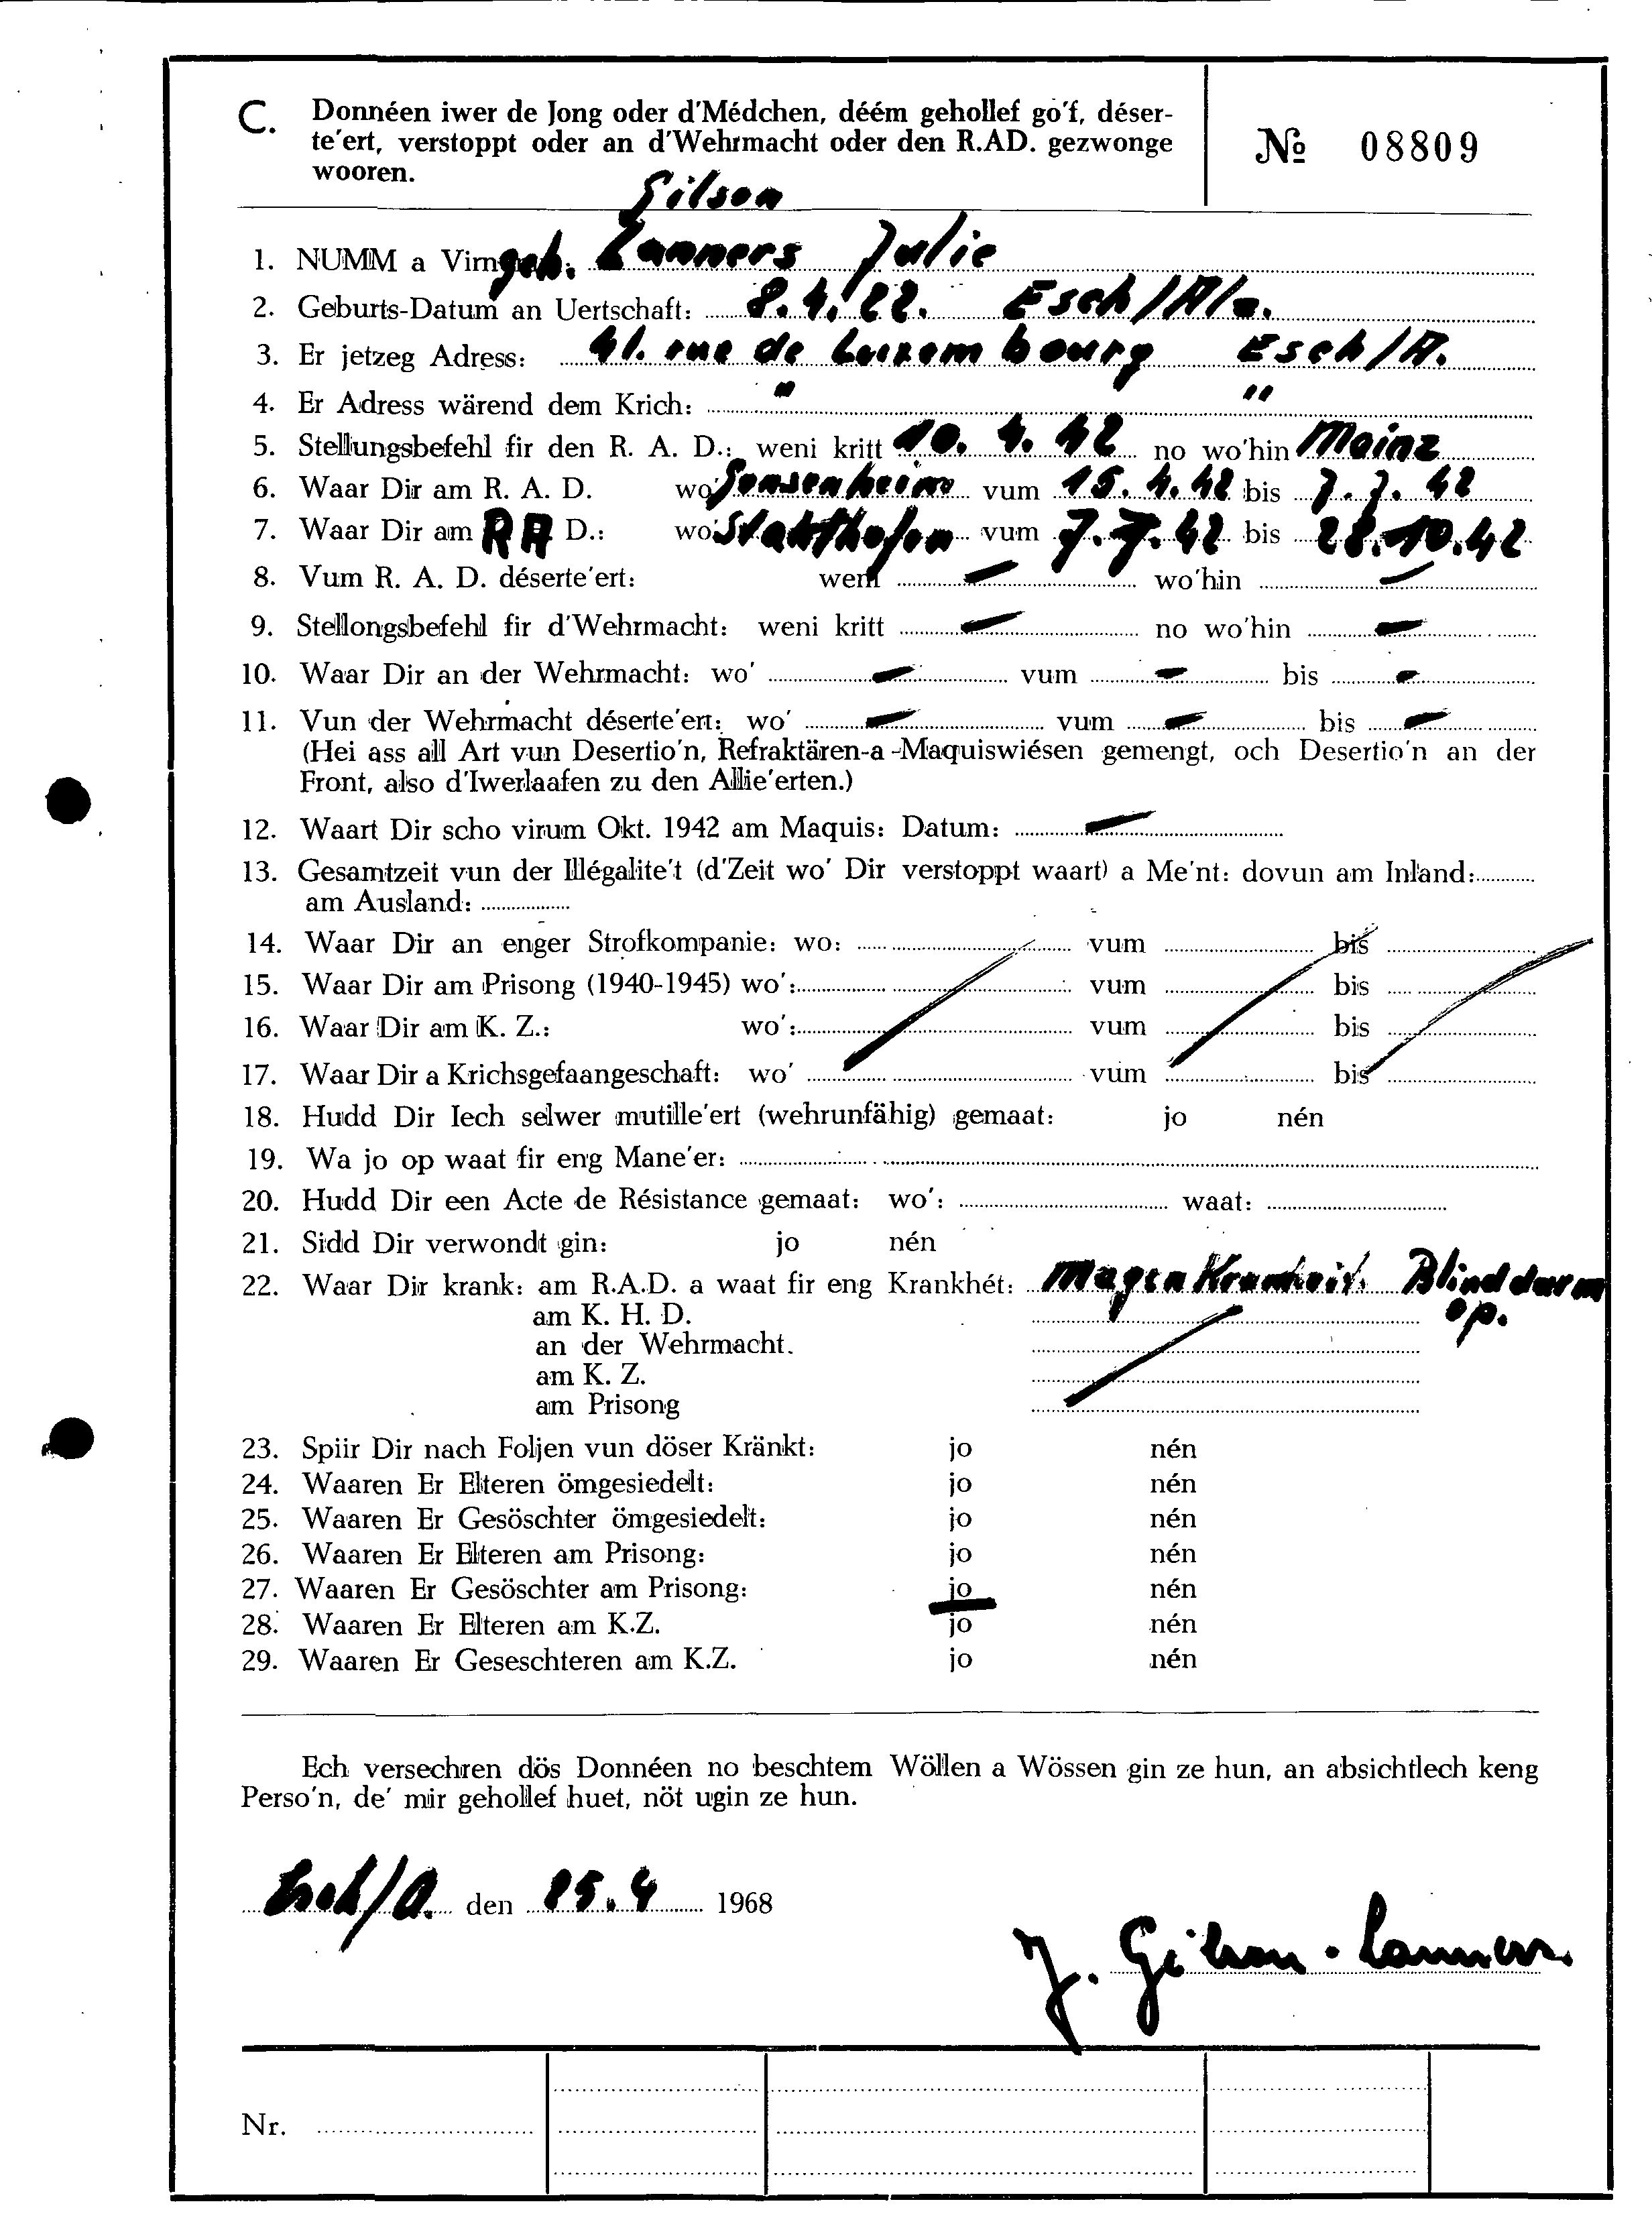 C. Donnéen iwer de Jong oder d'Médchen, déém gehollef go'f, déser-
te'ert, verstoppt oder an d'Wehrmacht oder den R.AD. gezwonge
wooren.
№ 08809
Gilson
1. NUMM a Virn geb. Lanners Julie
2. Geburts-Datum an Uertschaft: 8.4.22. Esch/Alz.
3. Er jetzeg Adress: 41. rue de Luxembourg Esch/A.
4. Er Adress wärend dem Krich: " "
5. Stellungsbefehl fir den R. A. D.: weni kritt 10. 4. 42 no wo'hin Mainz
6. Waar Dir am R. A. D. wo' Gonsenheim vum 15.4.42 bis 7.7.42
7. Waar Dir am RA D.: wo' vum 7.7.42 bis 28.10.42
8. Vum R. A. D. déserte'ert: weni — wo'hin —
9. Stellongsbefehl fir d'Wehrmacht: weni kritt — no wo'hin —
10. Waar Dir an der Wehrmacht: wo' — vum — bis —
11. Vun der Wehrmacht déserte'ert: wo' — vum — bis —
(Hei ass all Art vun Desertio'n, Refraktären-a -Maquiswiésen gemengt, och Desertio'n an der
Front, also d'Iwerlaafen zu den Allie'erten.)
12. Waart Dir scho virum Okt. 1942 am Maquis: Datum: —
13. Gesamtzeit vun der Illégalite't (d'Zeit wo' Dir verstoppt waart) a Me'nt: dovun am Inland:
am Ausland:
14. Waar Dir an enger Strofkompanie: wo: vum bis
15. Waar Dir am Prisong (1940-1945) wo': vum bis
16. Waar Dir am K. Z.: wo': vum bis
17. Waar Dir a Krichsgefaangeschaft: wo' vum bis
18. Hudd Dir Iech selwer mutille'ert (wehrunfähig) gemaat: jo nén
19. Wa jo op waat fir eng Mane'er:
20. Hudd Dir een Acte de Résistance gemaat: wo': waat:
21. Sidd Dir verwondt gin: jo nén
22. Waar Dir krank: am R.A.D. a waat fir eng Krankhét: Magen Krankheit. Blinddarm
op.
am K. H. D.
an der Wehrmacht.
am K. Z.
am Prisong
23. Spiir Dir nach Foljen vun döser Kränkt: jo nén
24. Waaren Er Elteren ömgesiedelt: jo nén
25. Waaren Er Gesöschter ömgesiedelt: jo nén
26. Waaren Er Elteren am Prisong: jo nén
27. Waaren Er Gesöschter am Prisong: jo nén
28. Waaren Er Elteren am K.Z. jo nén
29. Waaren Er Geseschteren am K.Z. jo nén
Ech versechren dös Donnéen no beschtem Wöllen a Wössen gin ze hun, an absichtlech keng
Perso'n, de' mir gehollef huet, nöt ugin ze hun.
Esch/A. den 25.4 1968
J. Gilson-Lanners
Nr.